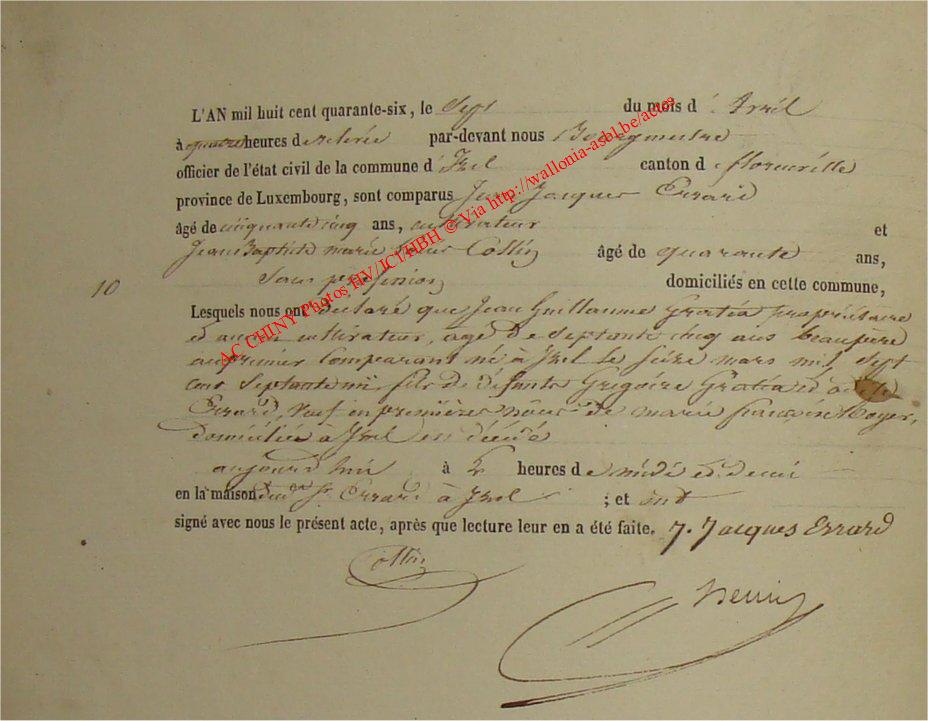 L'AN mil huit cent quarante-six, le Sept du mois d'Avril
à quatre heures de relevée par-devant nous Bourgmestre
officier de l'état civil de la commune d'Izel canton de florenville
province de Luxembourg, sont comparus Jean Jacques Errard
âgé de cinquante cinq ans, cultivateur et
Jean Baptiste marie Collin âgé de quarante ans,
10 Sans profession domiciliés en cette commune,
Lesquels nous ont déclaré que Jean Guillaume Gratia propriétaire
et cultivateur, agé de Septante cinq ans beaupère
au premier Comparant né à Izel le Seize mars mil Sept
cent Septante un fils de défunts Grégoire Gratia et
Errard, veuf en premières nôces de marie françoise Noyer,
domicilié à Izel est décédé
aujourd'hui à heures de midi et demi
en la maison dud. Sr. Errard à Izel ; et ont
signé avec nous le présent acte, après que lecture leur en a été faite. J. Jacques Errard
Collin
AC CHINY Photos HV/JC1/HBH © Via http://wallonia-asbl.be/actes